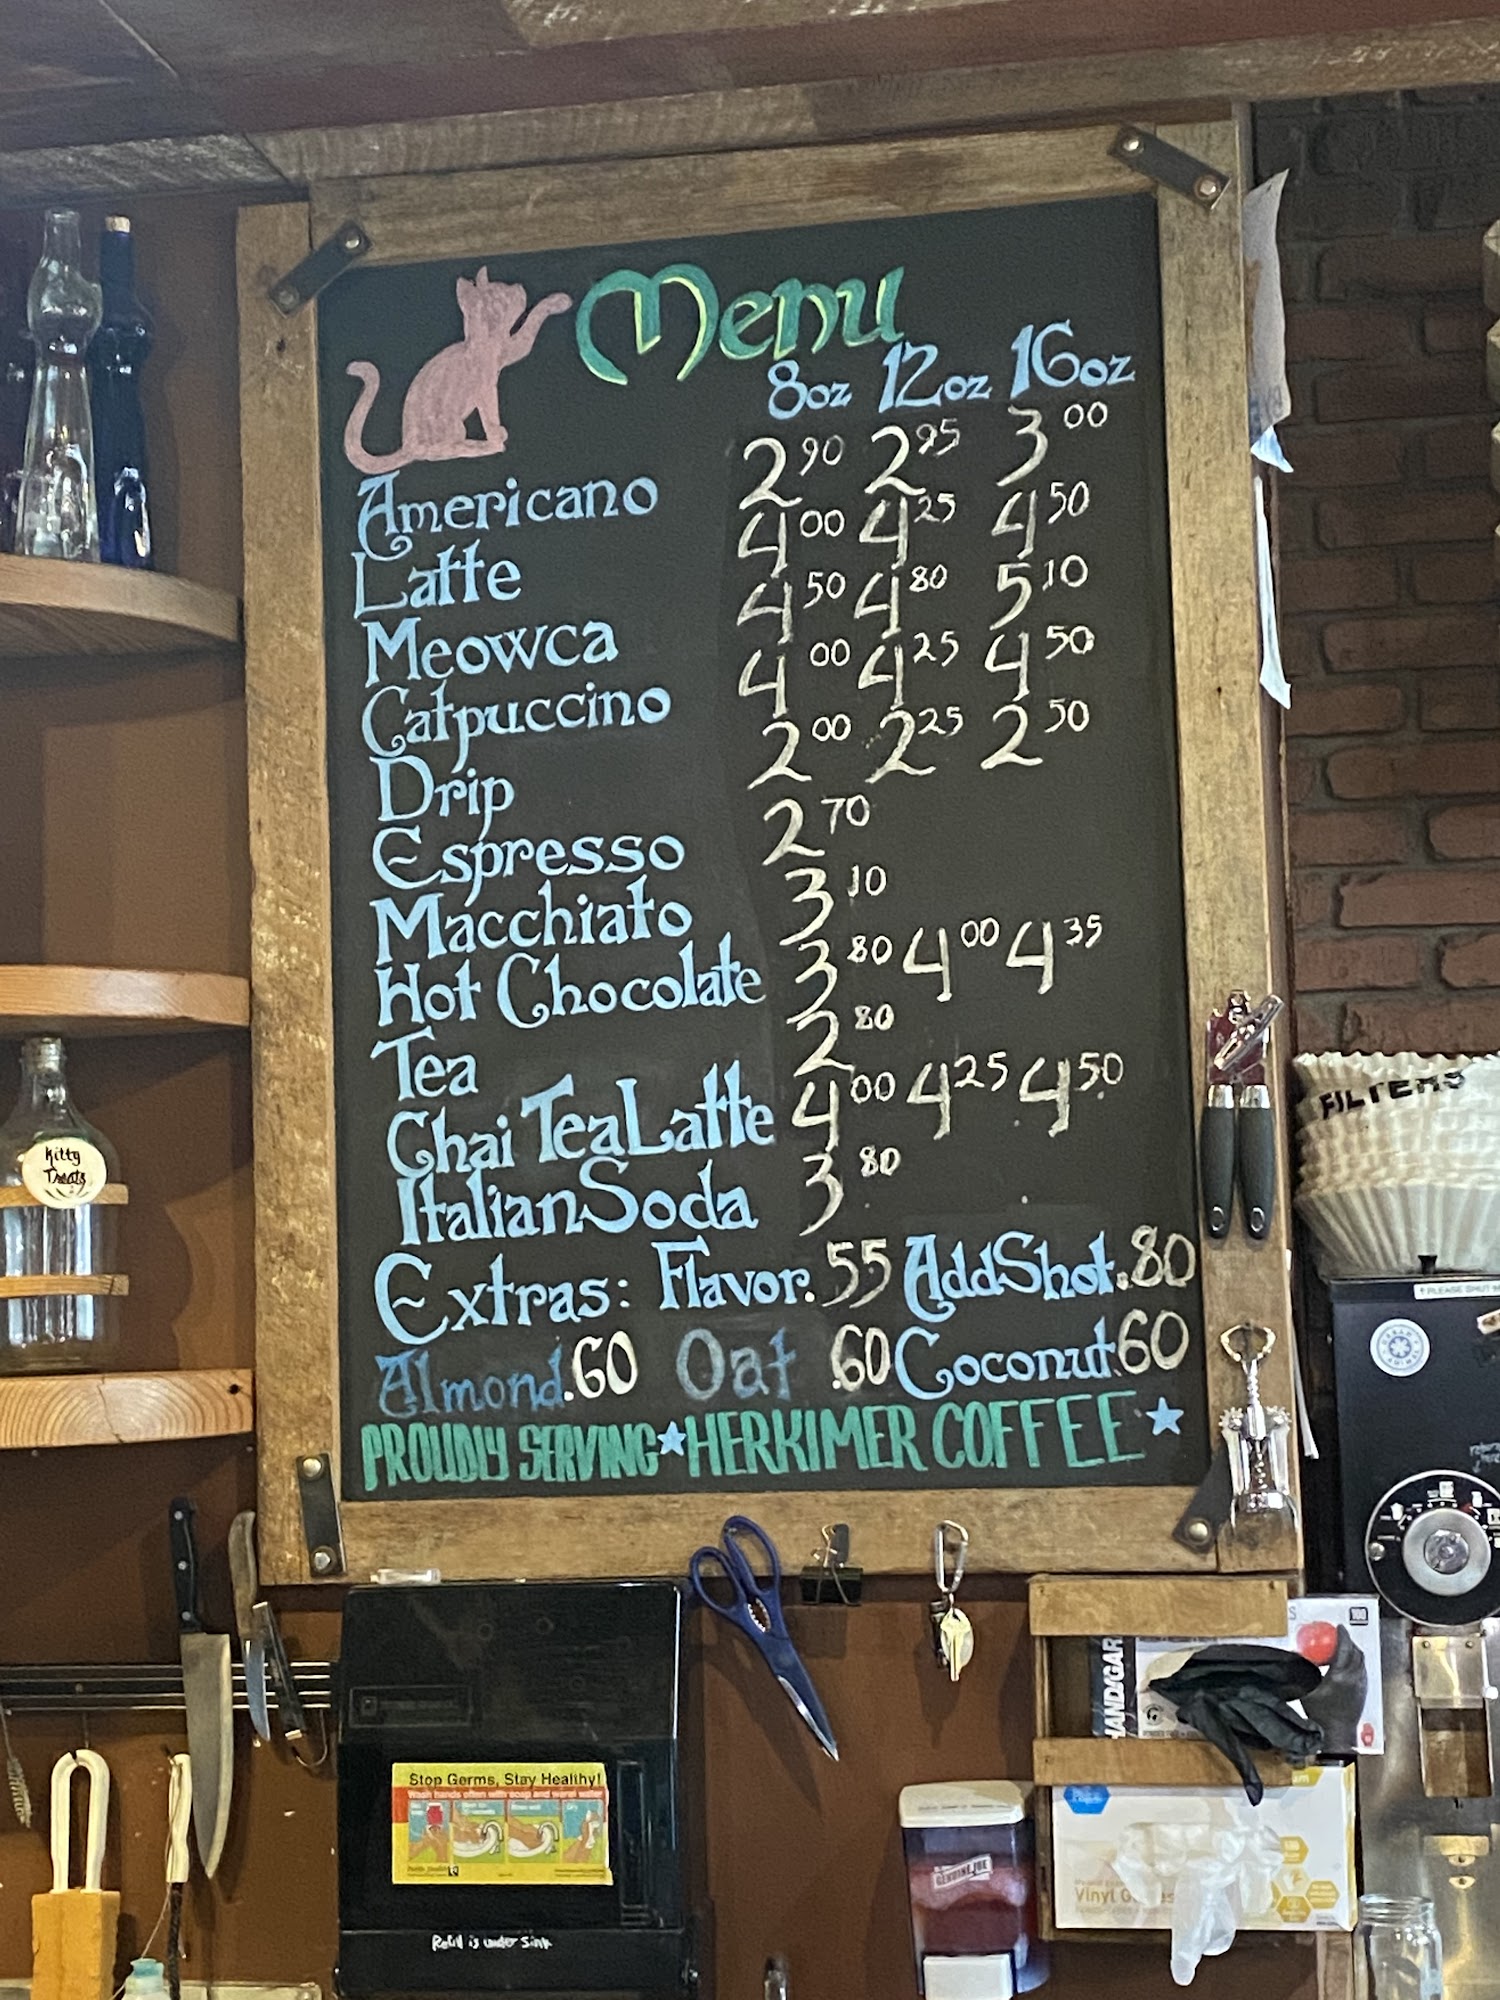 Menu
8oz 12oz 16oz
Americano 2.90 2.95 3.00
Latte 4.00 4.25 4.50
Meowca 4.50 4.80 5.10
Catpuccino 4.00 4.25 4.50
Drip 2.00 2.25 2.50
Espresso 2.70
Macchiato 3.10
Hot Chocolate 3.80 4.00 4.35
Tea 2.80
Chai Tea Latte 4.00 4.25 4.50
Italian Soda 3.80
Extras: Flavor .55 Add Shot .80
Almond .60 Oat .60 Coconut .60
PROUDLY SERVING ★ HERKIMER COFFEE ★
Kitty
Treats
FILTERS
Stop Germs, Stay Healthy!
Wash hands often with soap and warm water
Refill is under sink
GENUINE JOE
Vinyl